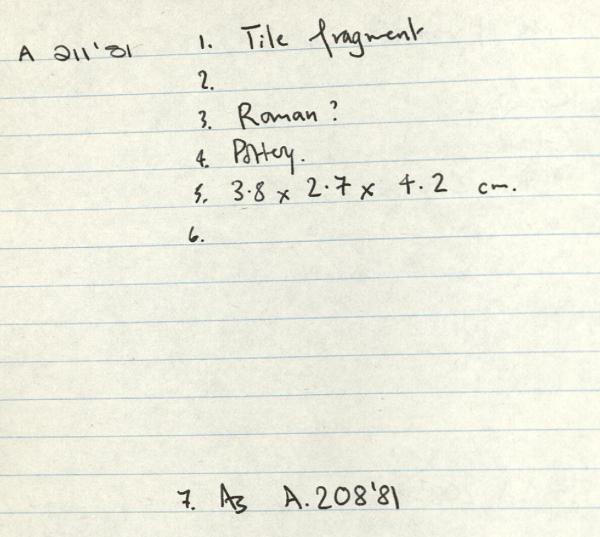 A 211'81 1. Tile fragment
2.
3. Roman?
4. Pottery.
5. 3.8 x 2.7 x 4.2 cm.
6.
7. As A.208'81